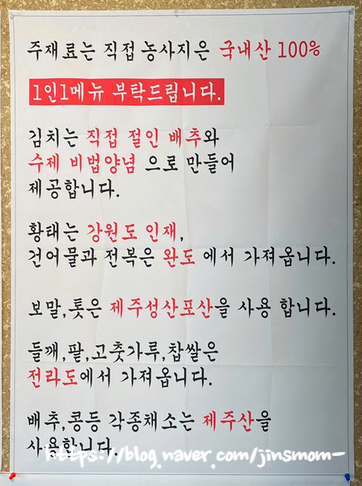 주재료는 직접 농사지은 국내산 100%
1인1메뉴 부탁드립니다.
김치는 직접 절인 배추와
수제 비법양념 으로 만들어
제공합니다.
황태는 강원도 인재,
건어물과 전복은 완도 에서 가져옵니다.
보말,톳은 제주성산포산을 사용 합니다.
들깨,팥,고춧가루,찹쌀은
전라도에서 가져옵니다.
배추,콩등 각종채소는 제주산을
사용합니다.
https://blog.naver.com/jinsmom-